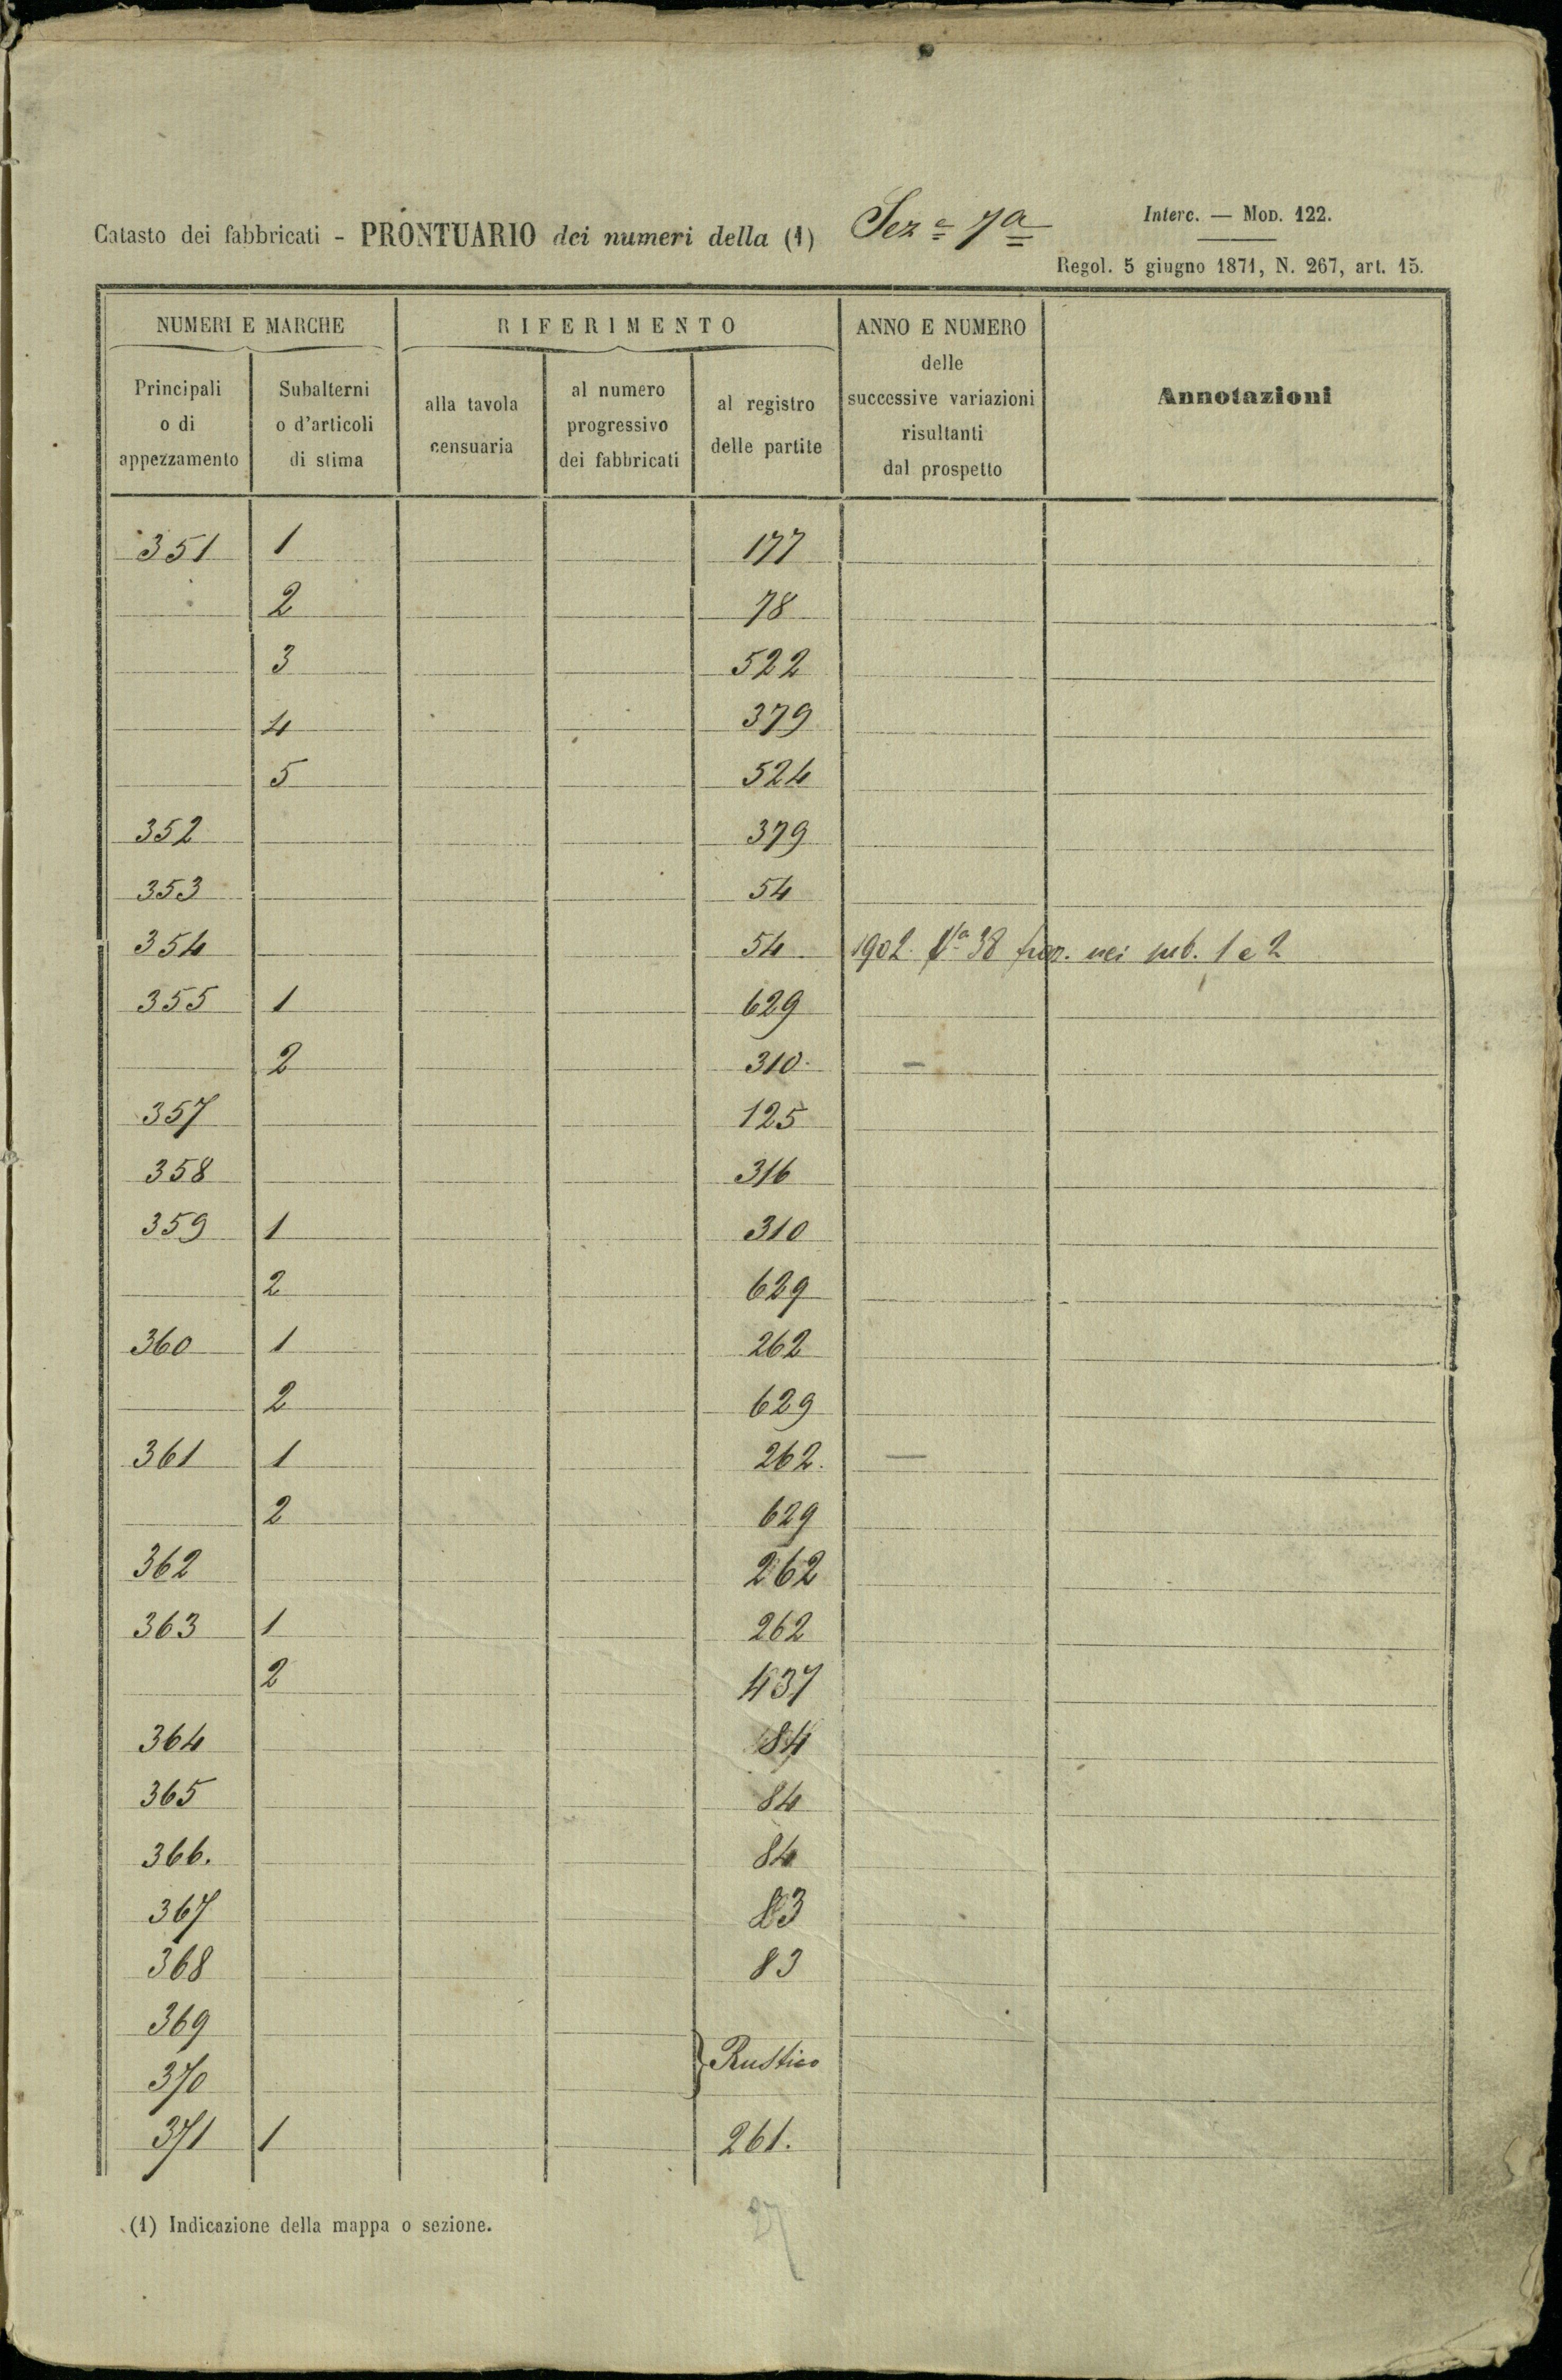 Catasto dei fabbricati - PRONTUARIO dei numeri della (1) Sez.e 7a
Interc. — Mod. 122.
Regol. 5 giugno 1871, N. 267, art. 15.
NUMERI E MARCHE
RIFERIMENTO
ANNO E NUMERO
delle
successive variazioni
risultanti
dal prospetto
Annotazioni
Principali
o di
appezzamento
Subalterni
o d'articoli
di stima
alla tavola
censuaria
al numero
progressivo
dei fabbricati
al registro
delle partite
351 1 177
2 78
3 522
4 379
5 524
352 379
353 54
354 54 1902 38 nei sub. 1 e 2
355 1 629
2 310
357 125
358 316
359 1 310
2 629
360 1 262
2 629
361 1 262. —
2 629
362 262
363 1 262
2 437
364 84
365 84
366. 84
367 83
368 83
369
370
} Rustico
371 1 261.
(1) Indicazione della mappa o sezione.
27